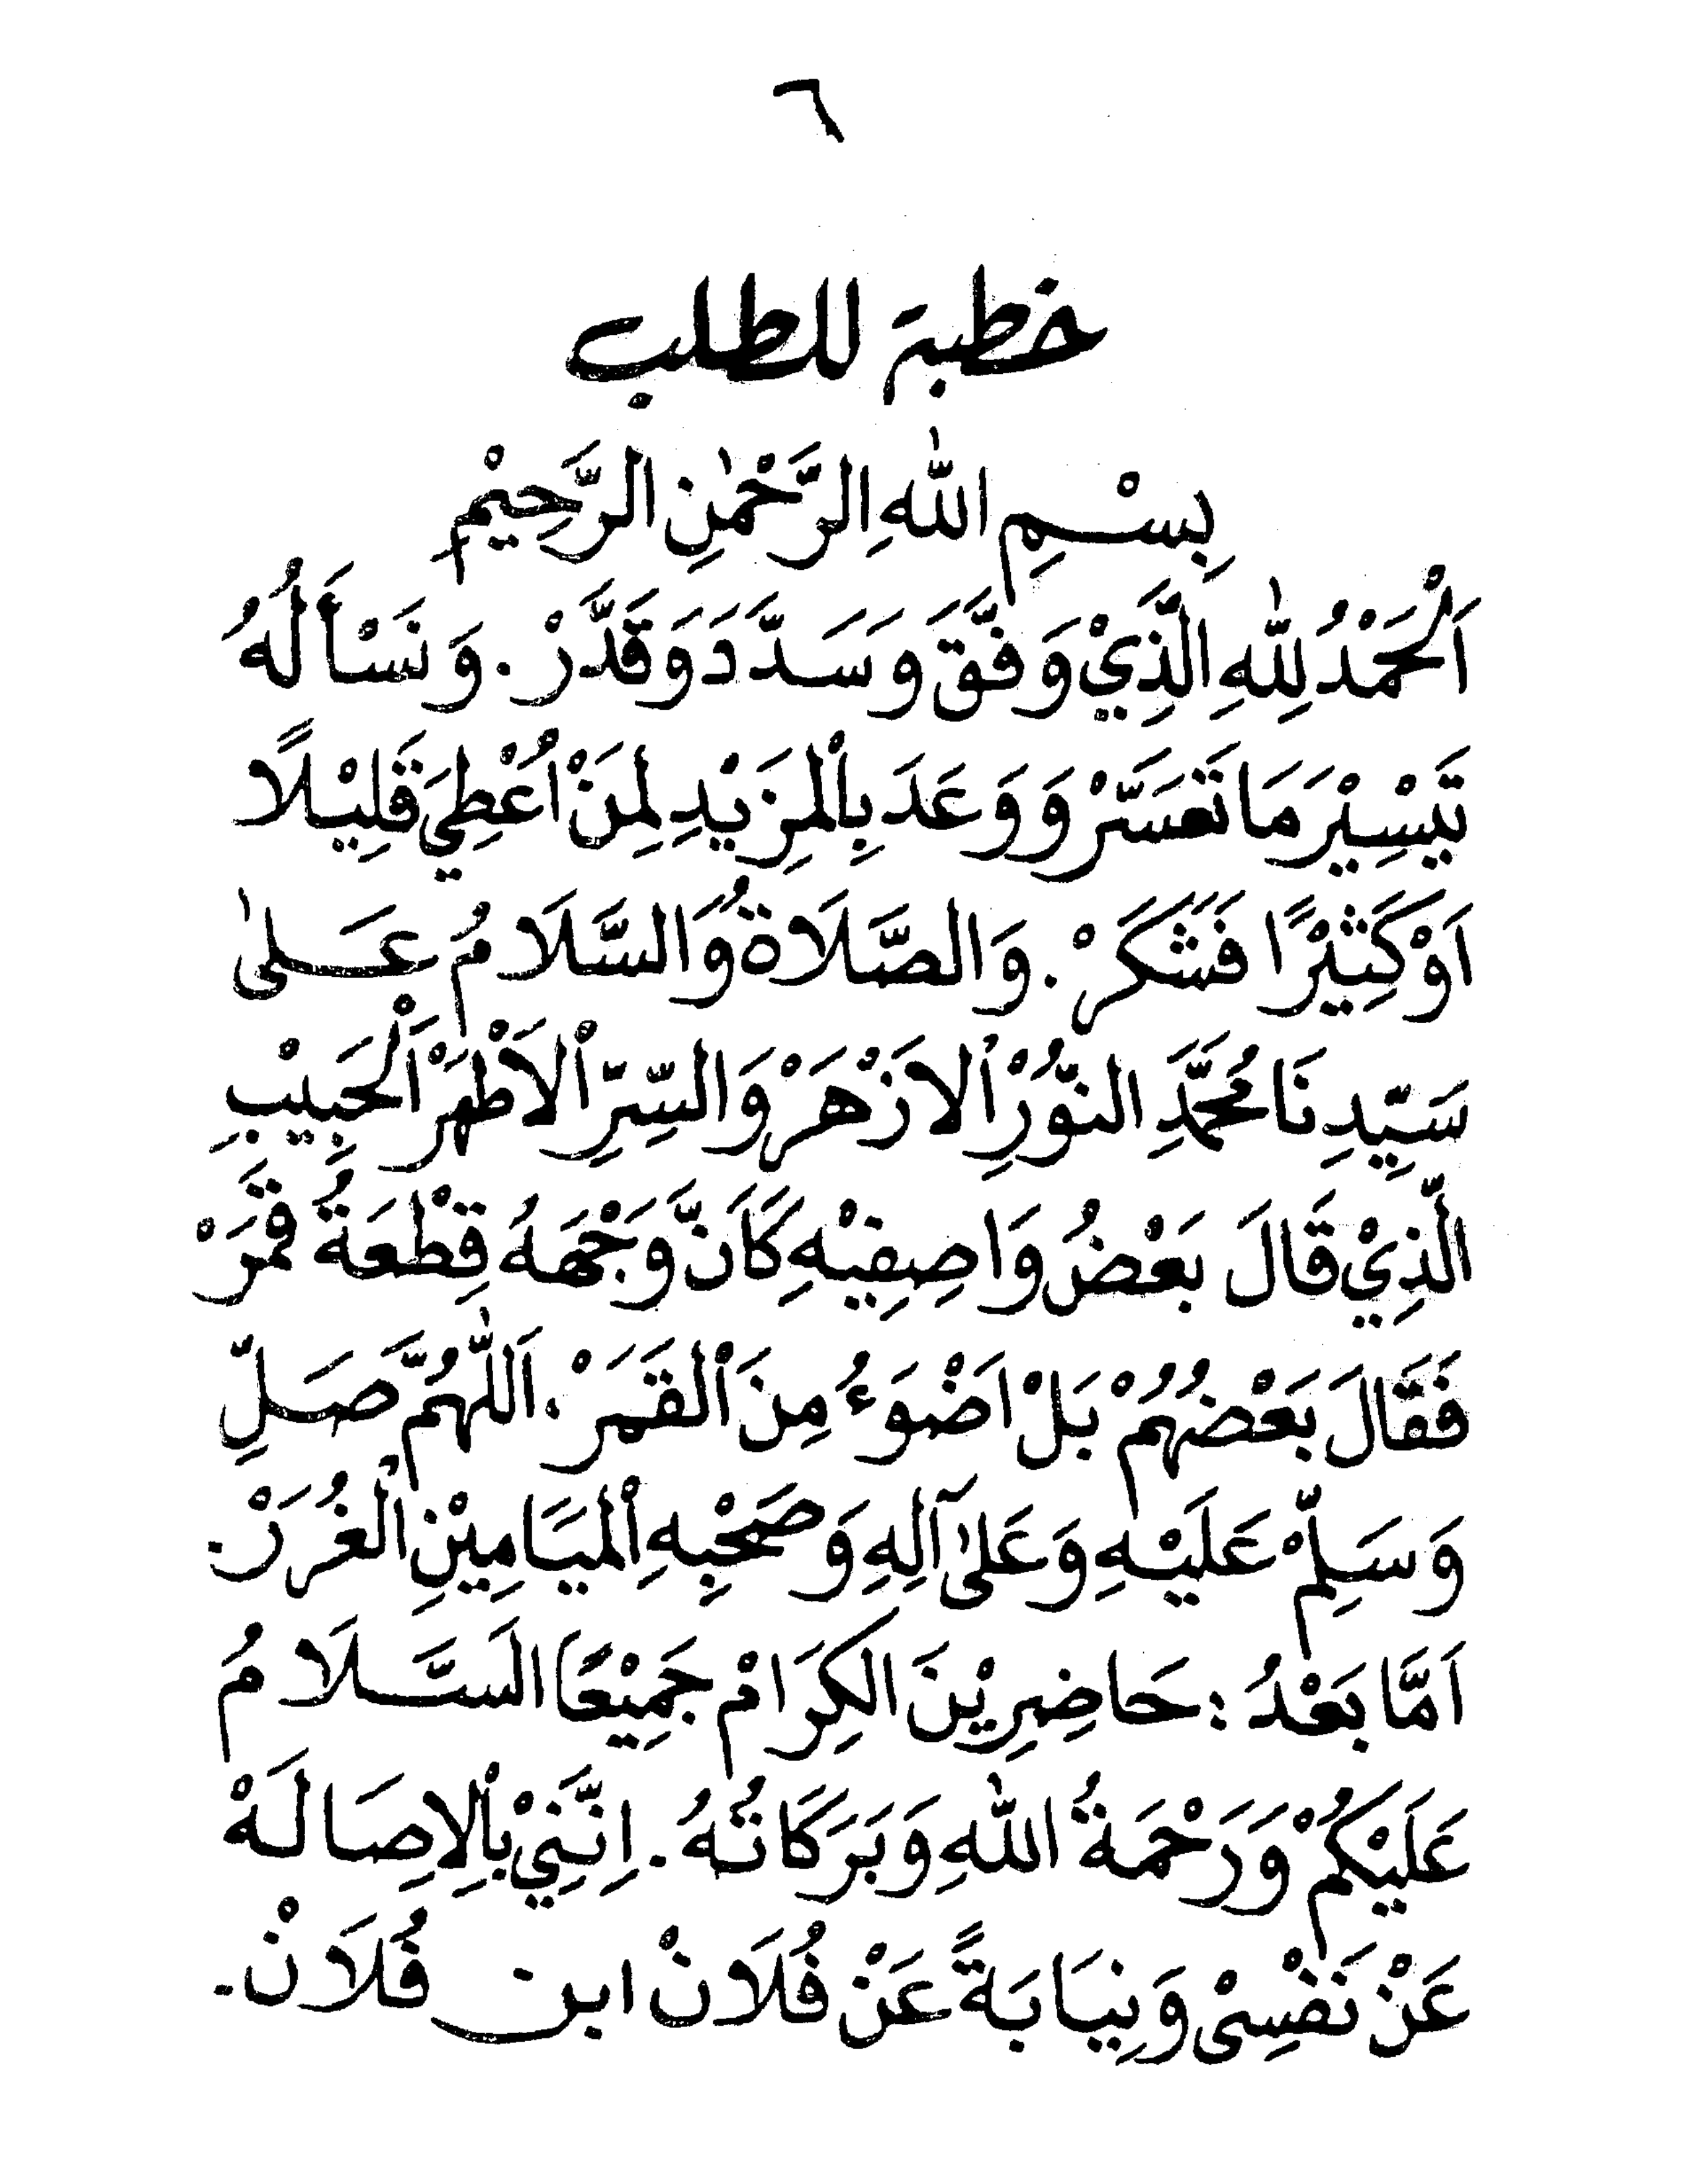 ٦
خطبة للطلب
بِسْمِ اللّٰهِ الرَّحْمٰنِ الرَّحِيْمِ
اَلْحَمْدُ لِلّٰهِ الَّذِيْ وَفَّقَ وَسَدَّدَ وَقَدَّرْ. وَنَسْأَلُهُ
تَيْسِيْرَ مَا تَعَسَّرْ وَوَعَدَ بِالْمَزِيْدِ لِمَنْ اُعْطِيَ قَلِيْلًا
اَوْ كَثِيْرًا فَشَكَرْ. وَالصَّلَاةُ وَالسَّلَامُ عَلىٰ
سَيِّدِنَا مُحَمَّدِ النُّوْرِ اْلاَزْهَرْ وَالسِّرِّ اْلاَظْهَرْ اَلْحَبِيْبِ
الَّذِيْ قَالَ بَعْضُ وَاصِفِيْهِ كَاَنَّ وَجْهَهُ قِطْعَةُ قَمَرْ
فَقَالَ بَعْضُهُمْ بَلْ اَضْوَءُ مِنَ اْلقَمَرْ. اَللّٰهُمَّ صَلِّ
وَسَلِّمْ عَلَيْهِ وَعَلىٰ آلِهِ وَصَحْبِهِ اْلمَيَامِيْنِ الْغُرَرْ.
اَمَّا بَعْدُ : حَاضِرِيْنَ الكِرَامْ جَمِيْعًا اَلسَّلَامُ
عَلَيْكُمْ وَرَحْمَةُ اللّٰهِ وَبَرَكَاتُهُ. اِنَّنِيْ بِاْلاِصَالَةْ
عَنْ نَفْسِىْ وَنِيَابَةً عَنْ فُلَانْ ابن فُلَانْ.